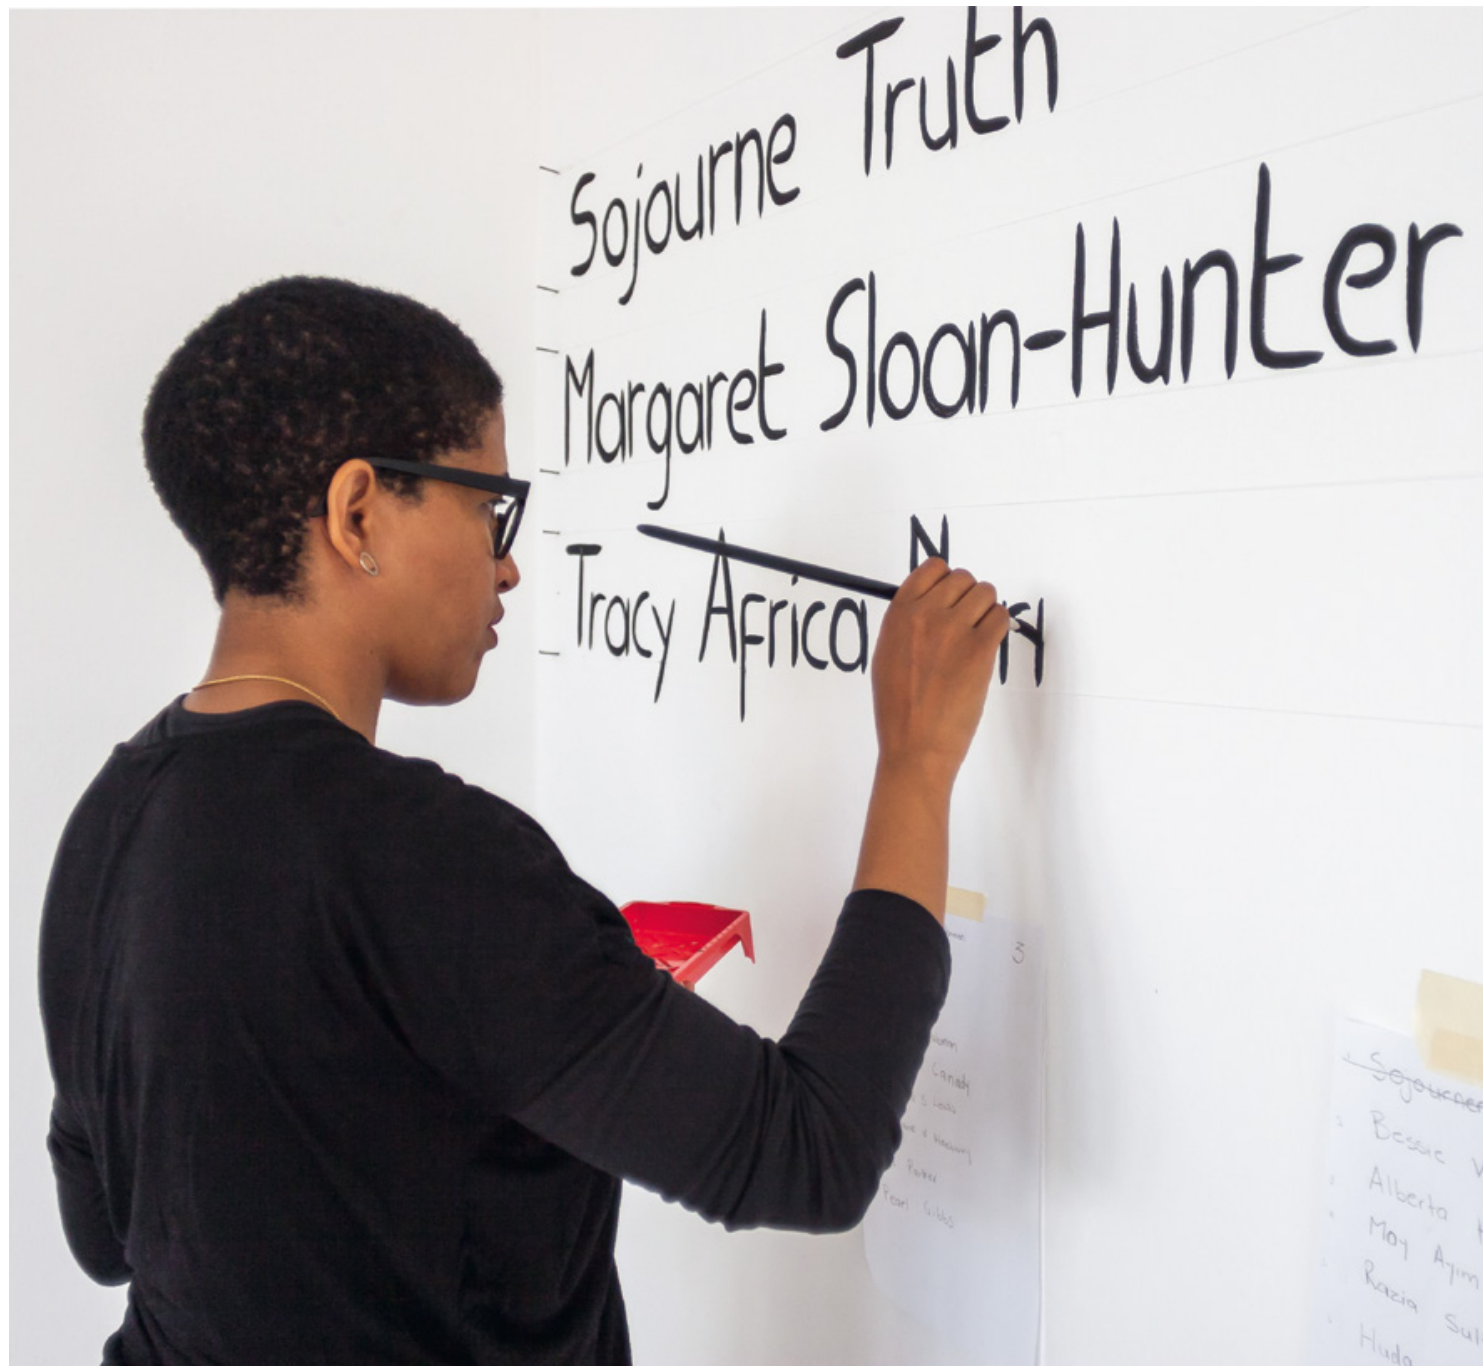 Sojourne Truth
Margaret Sloan-Hunter
Tracy Africa
3
Canady
Parker
Pearl Gibbs
Sojourner
Bessie
Alberta
May Ayim
Razia
Huda